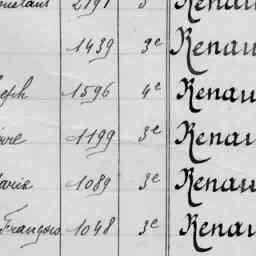 2191 Renau
1439 3e Renau
seph 1596 4e Renau
1199 3e Renau
Marie 1089 3e Renau
François 1048 3e Renau